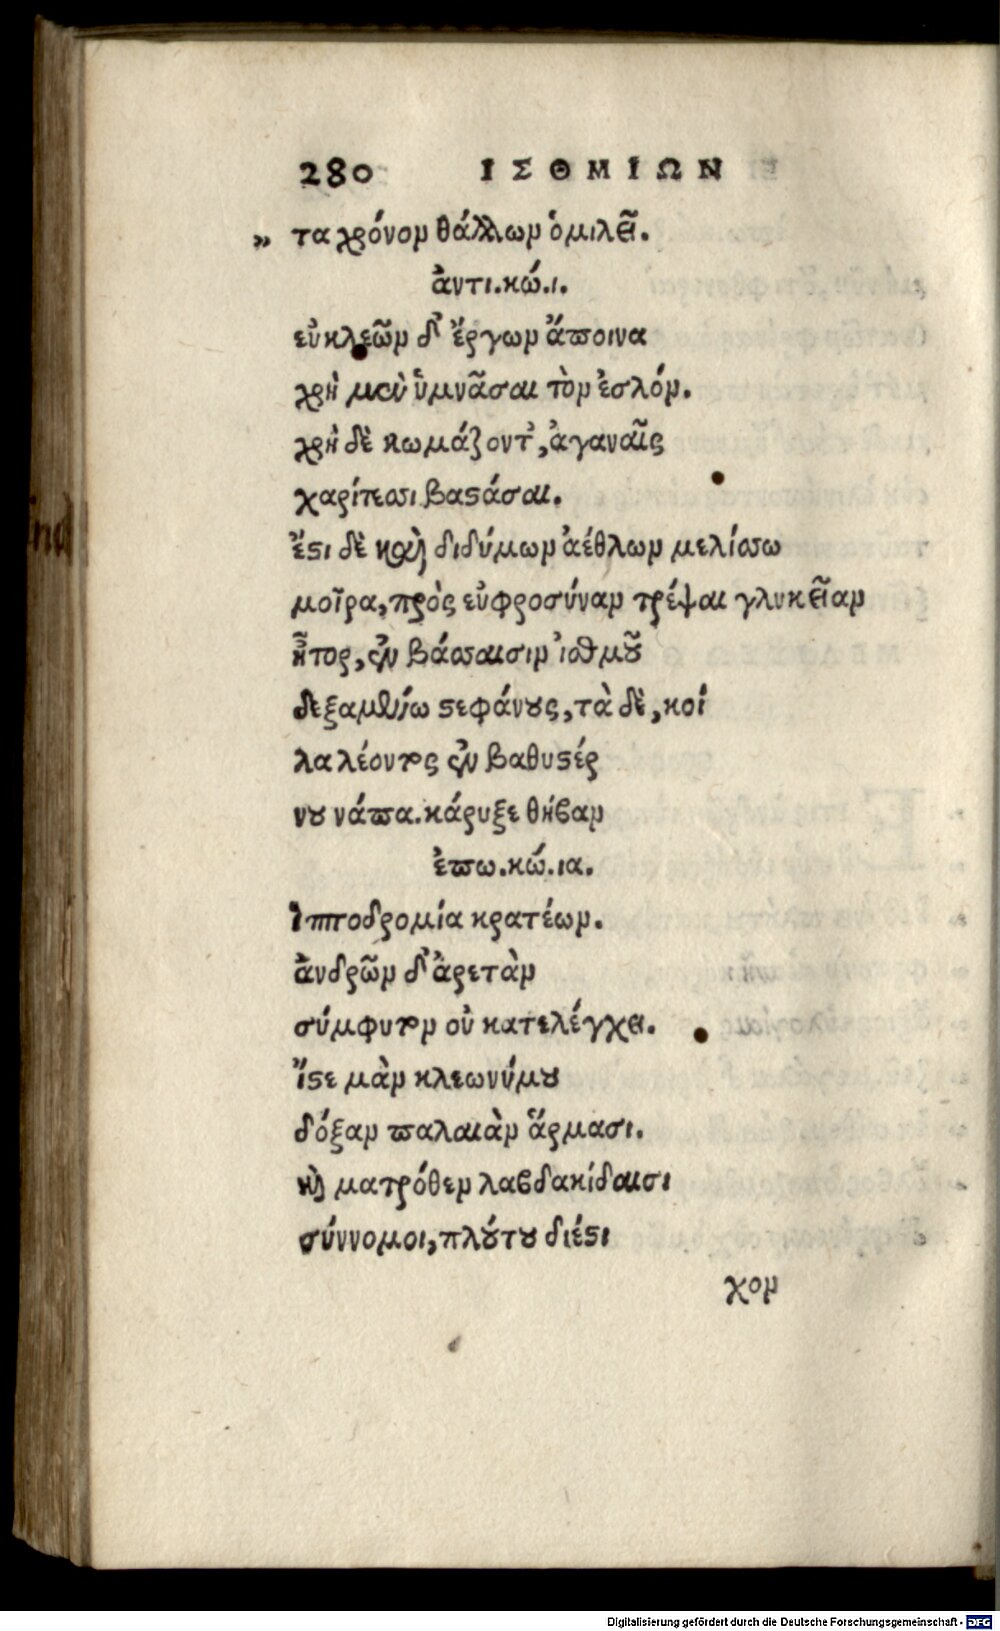 280 ΙΣΘΜΙΩΝ
" τα χρόνον θάλλων ὁμιλεῖ.
ἀντι.κώ.ι.
εὐκλεῶν δ' ἔργων ἄποινα
χρὴ μὲν ὑμνᾶσαι τὸν ἐσλόν.
χρὴ δὲ κωμάζοντ', ἀγαναῖς
χαρίτεσσι βαστάσαι.
ἔστι δὲ καὶ διδύμων ἀέθλων μελίσσω
μοῖρα, πρὸς εὐφροσύναν τρέψαι γλυκεῖαν
ἦτορ, ἐν βάσσαισιν ἰσθμοῦ
δεξαμένω στεφάνους, τὰ δὲ, κοί
λα λέοντος ἐν βαθυστέρ
νου νάπα. κάρυξε θήβαν
ἐπω.κώ.ια.
ἱπποδρομία κρατέων.
ἀνδρῶν δ' ἀρετὰν
σύμφυτον οὐ κατελέγχει.
ἴστε μὰν κλεωνύμου
δόξαν παλαιὰν ἅρμασι.
καὶ ματρόθεν λαβδακίδαισι
σύννομοι, πλούτου διέστι
χον
Digitalisierung gefördert durch die Deutsche Forschungsgemeinschaft - DFG